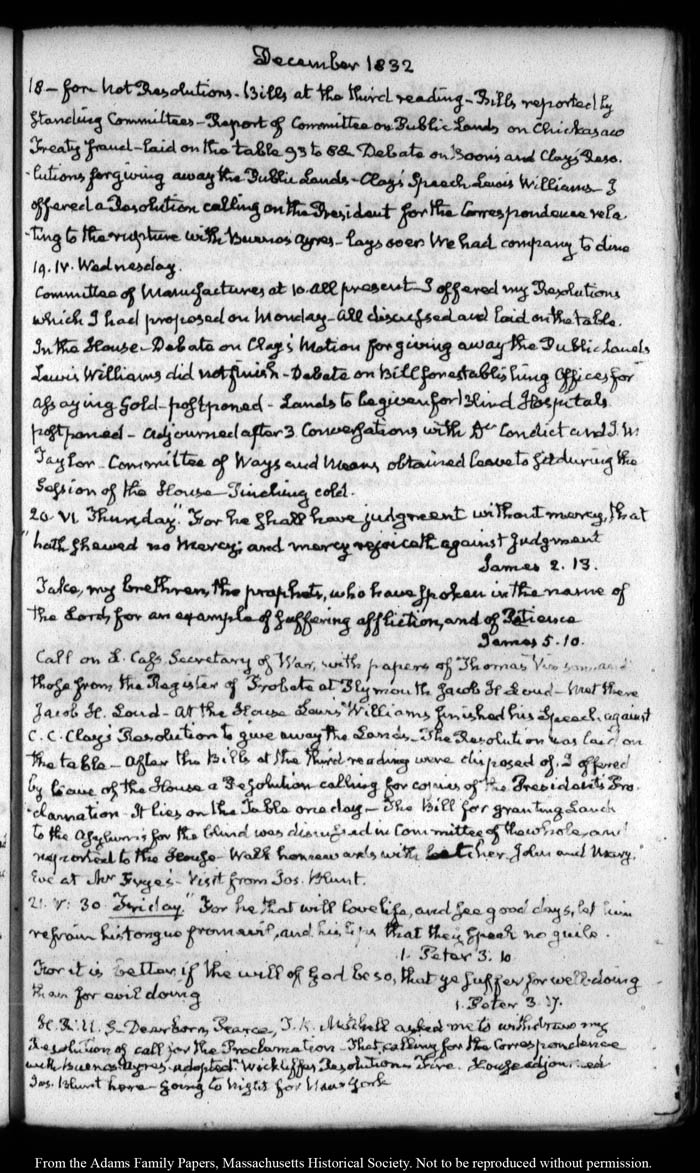 December 1832
18 – for not Resolutions. Bills at the third reading – Bills reported by
Standing Committees – Report of Committee on Public Lands on Chickasaw
Treaty fraud – laid on the table 93 to 88 Debate on Boon's and Clay's Reso-
-lutions for giving away the Public Lands – Clay's Speech Lewis Williams – I
offered a Resolution calling on the President for the Correspondence rela-
-ting to the rupture with Buenos Ayres – lays over We had company to dine
19. IV. Wednesday.
Committee of Manufactures at 10. all present – I offered my Resolutions
which I had proposed on Monday – All discussed and laid on the table.
In the House – Debate on Clay's Motion for giving away the Public Lands
Lewis Williams did not finish – Debate on Bill for establishing Offices for
assaying Gold – postponed – Lands to be given for Blind Hospitals
postponed – Adjourned after 3. Conversations with Dr Condict and J. W
Taylor – Committee of Ways and Means obtained leave to sit during the
Session of the House – Pinching cold.
20. VI. Thursday. "For he shall have judgment without mercy, that
"hath shewed no Mercy; and mercy rejoiceth against Judgment
James 2. 13.
Take, my brethren, the prophets, who have spoken in the name of
the Lord, for an example of suffering affliction, and of Patience
James 5. 10.
Call on L. Cass. Secretary of War, with papers of Thomas and
those from the Register of Probate at Plymouth Jacob H. Loud – Met there
Jacob H. Loud – At the House Lewis Williams finished his Speech against
C. C. Clay's Resolution to give away the Lands – The Resolution was laid on
the table – After the Bills at the third reading were disposed of, I offered
by leave of the House a Resolution calling for copies of the President's Pro-
-clamation – It lies on the Table one day – The Bill for granting Land
to the Asylums for the blind was discussed in Committee of the whole, and
reported to the House – Walk homewards with John and Mary.
Eve at Mr Frye's – Visit from Jos. Blunt.
21. V: 30. Friday. "For he that will love life, and see good days, let him
refrain his tongue from evil, and his lips that they speak no guile.
1. Peter 3. 10.
For it is better, if the will of God be so, that ye suffer for well-doing
than for evil doing
1. Peter 3. 17.
H. R. U. S – Dearborn, Pearce, T. R. Mitchell asked me to withdraw my
Resolution of call for the Proclamation – That calling for the Correspondence
with Buenos Ayres adopted. Wickliffe's Resolution – Fire. House adjourned
Jos. Blunt here – going to night for New-York
From the Adams Family Papers, Massachusetts Historical Society. Not to be reproduced without permission.